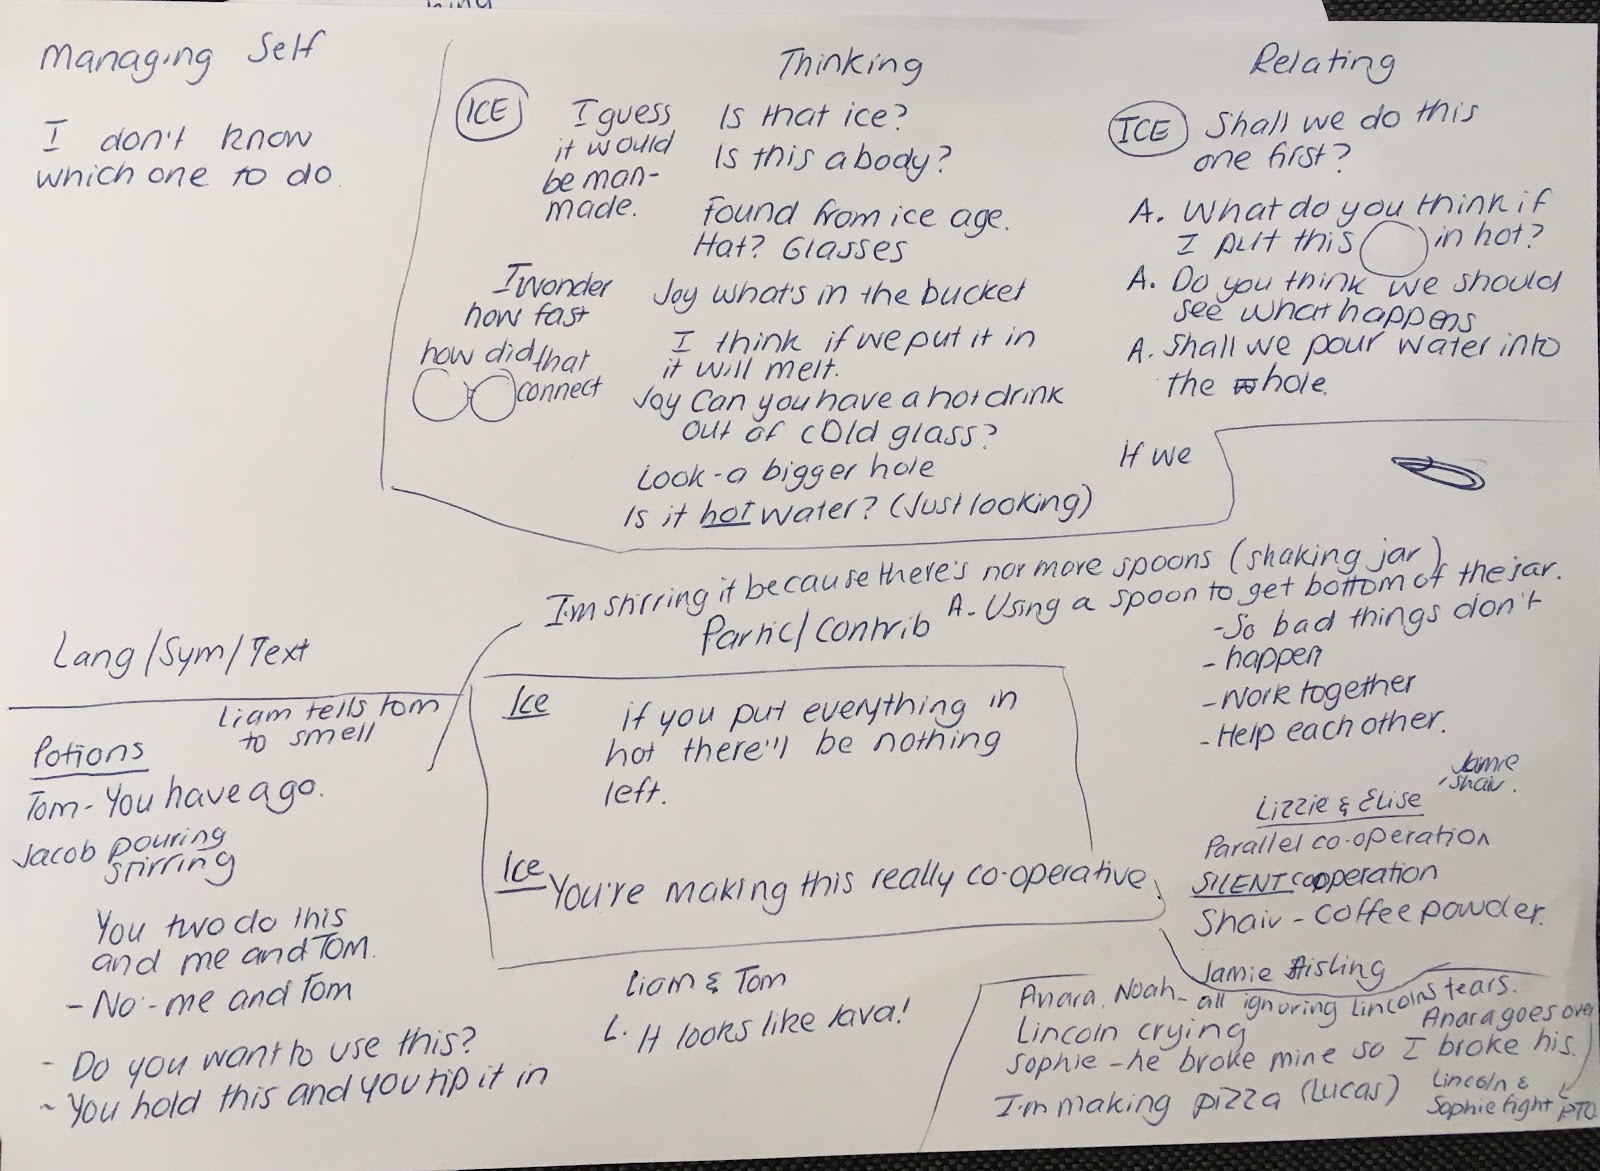 Managing Self
I don't know
which one to do.
Thinking
ICE
I guess
it would
be man-
made.
Is that ice?
Is this a body?
Found from ice age.
Hat? Glasses
I wonder
how fast
how did that
connect
Joy what's in the bucket
I think if we put it in
it will melt.
Joy Can you have a hot drink
out of cold glass?
Look - a bigger hole
Is it hot water? (Just looking)
Relating
ICE
Shall we do this
one first?
A. What do you think if
I put this in hot?
A. Do you think we should
see what happens
A. Shall we pour water into
the hole.
If we
I'm stirring it because there's nor more spoons (shaking jar)
Partic/Contrib
A - Using a spoon to get bottom of the jar.
- So bad things don't
- happen
- Work together
- Help each other.
Lang/Sym/Text
Liam tells tom
to smell
Potions
Tom - You have a go.
Jacob pouring
stirring
You two do this
and me and Tom.
- No - me and Tom
- Do you want to use this?
~ You hold this and you tip it in
Ice
if you put everything in
hot there'll be nothing
left.
Ice
You're making this really co-operative
Liam & Tom
L. It looks like lava!
Jamie
Shaiv.
Lizzie & Elise
Parallel co-operation
SILENT cooperation
Shaiv - Coffee powder.
Jamie Aisling
Anara, Noah - all ignoring Lincolns tears.
Lincoln crying
Anara goes over
Sophie - he broke mine so I broke his.
I'm making pizza (Lucas)
Lincoln &
Sophie fight
PTO